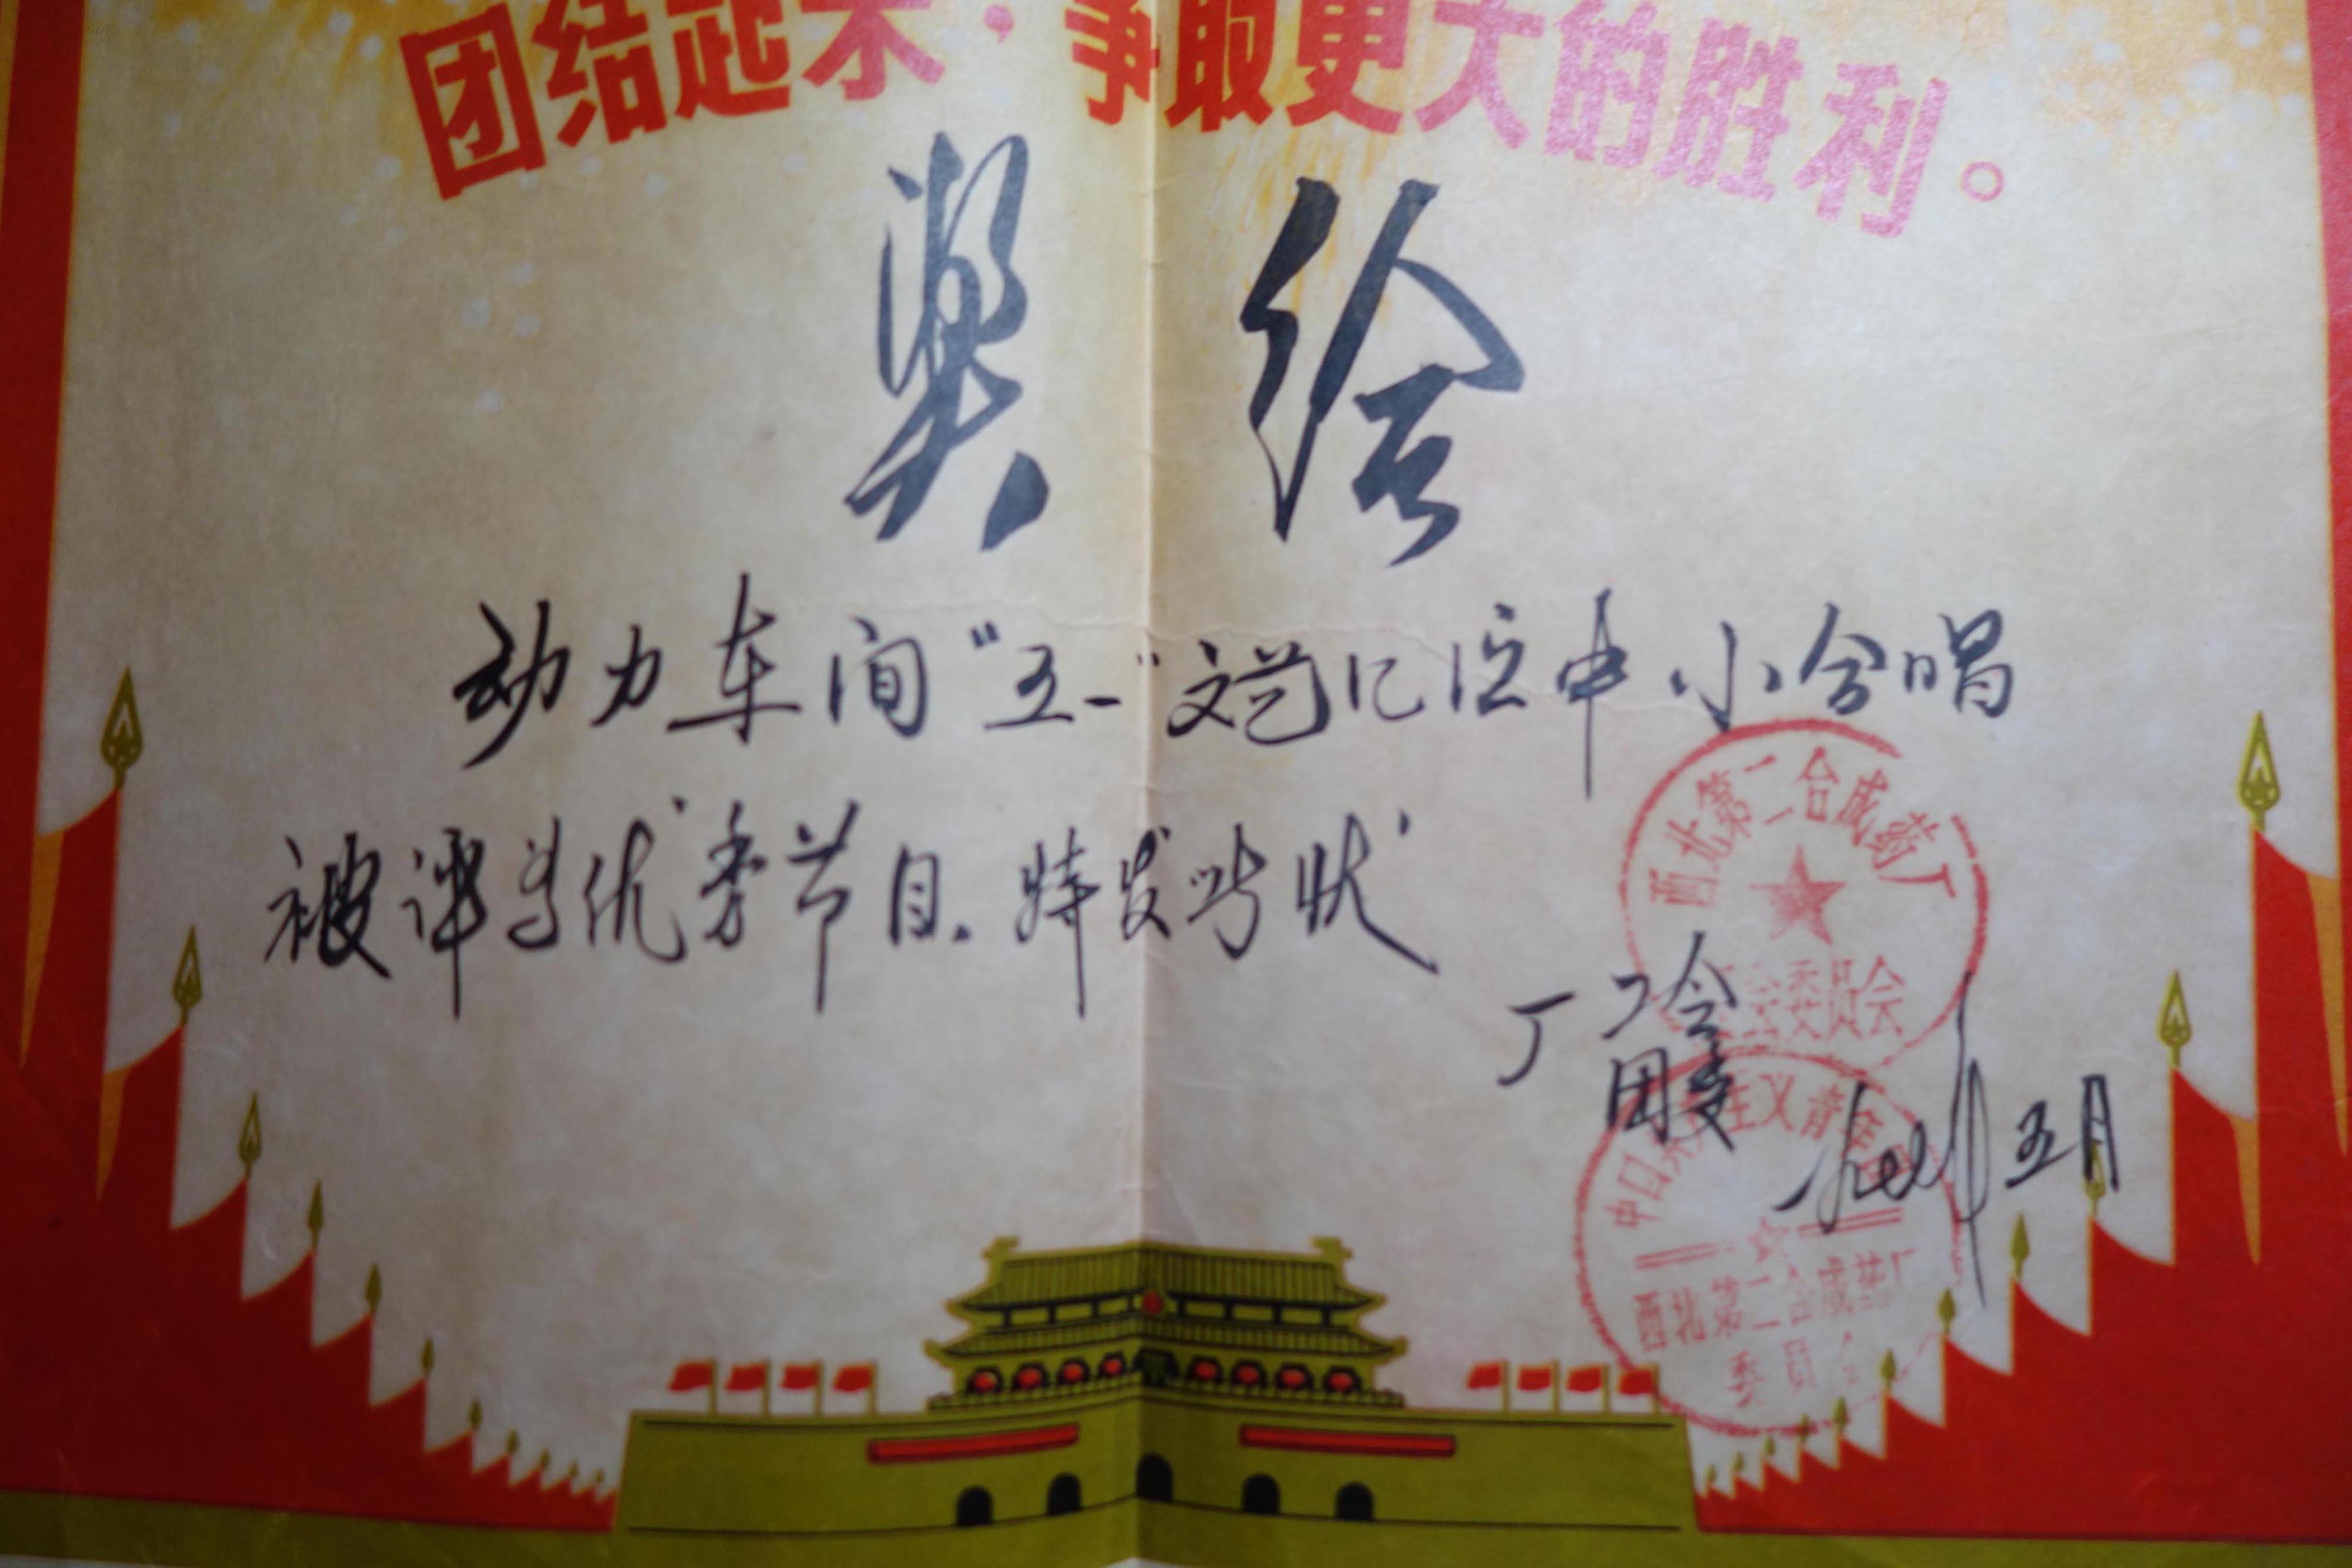 团结起来，争取更大的胜利。
奖给
动力车间“五一”文艺汇演中小合唱
被评为优秀节目.特发此状
西北第二合成药厂
委员会
厂工会
团委
五月
中国共产主义青年团
西北第二合成药厂
委员会